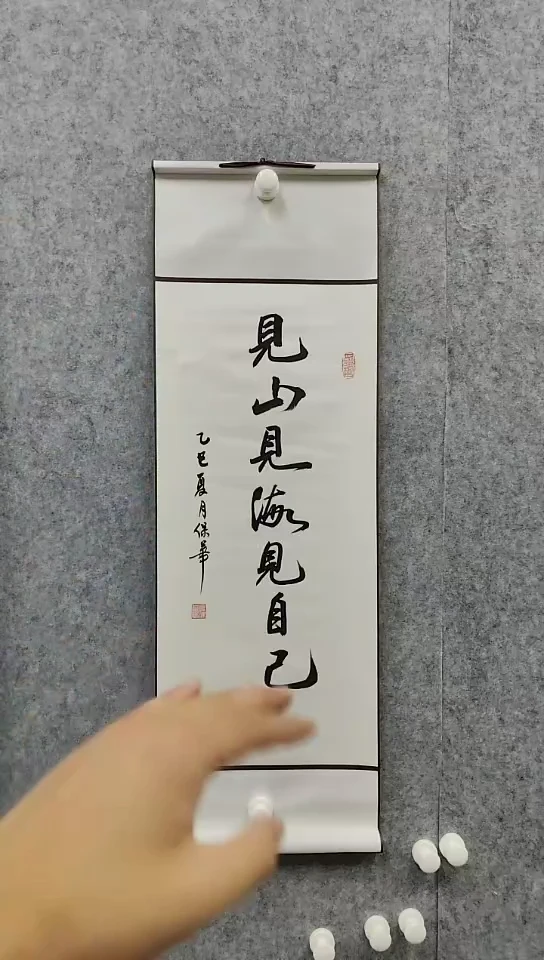 見山見海見自己
乙巳夏月保華